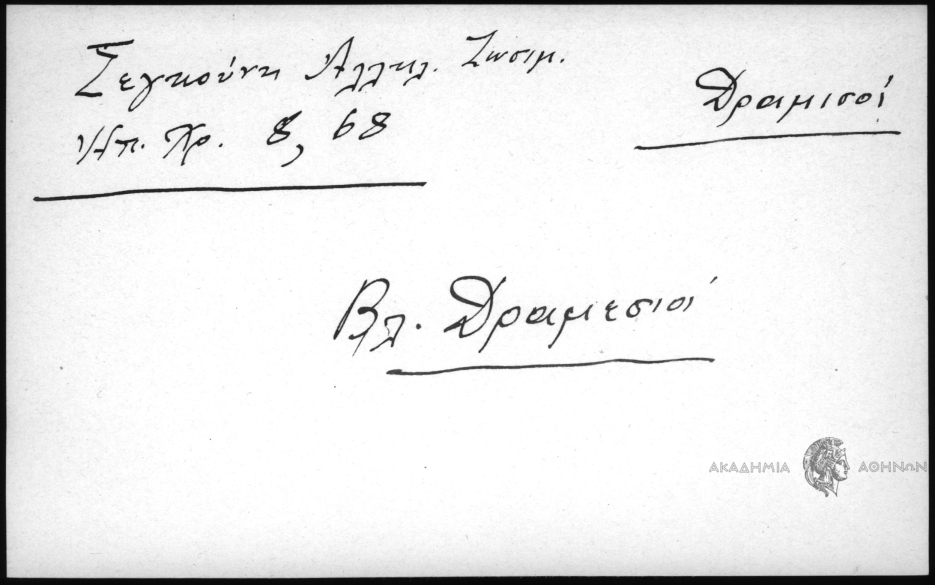 Σεγκούνη Ἀλληλ. Ζωσιμ.
Ἠπ. Χρ. 8, 68
Δραμισοί
Βλ. Δραμεσιοί
ΑΚΑΔΗΜΙΑ ΑΘΗΝΩΝ